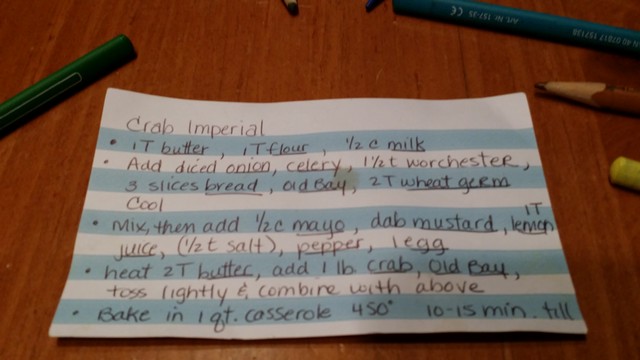 Crab Imperial
• 1T butter, 1T flour, 1/2 c milk
• Add diced onion, celery, 1 1/2 t worchester,
3 slices bread, Old Bay, 2T wheat germ
Cool
• Mix, then add 1/2 c mayo, dab mustard, 1T lemon
juice, (1/2 t salt), pepper, 1 egg
• heat 2T butter, add 1 lb crab, Old Bay,
toss lightly & combine with above
• Bake in 1 qt. casserole 450° 10-15 min. till